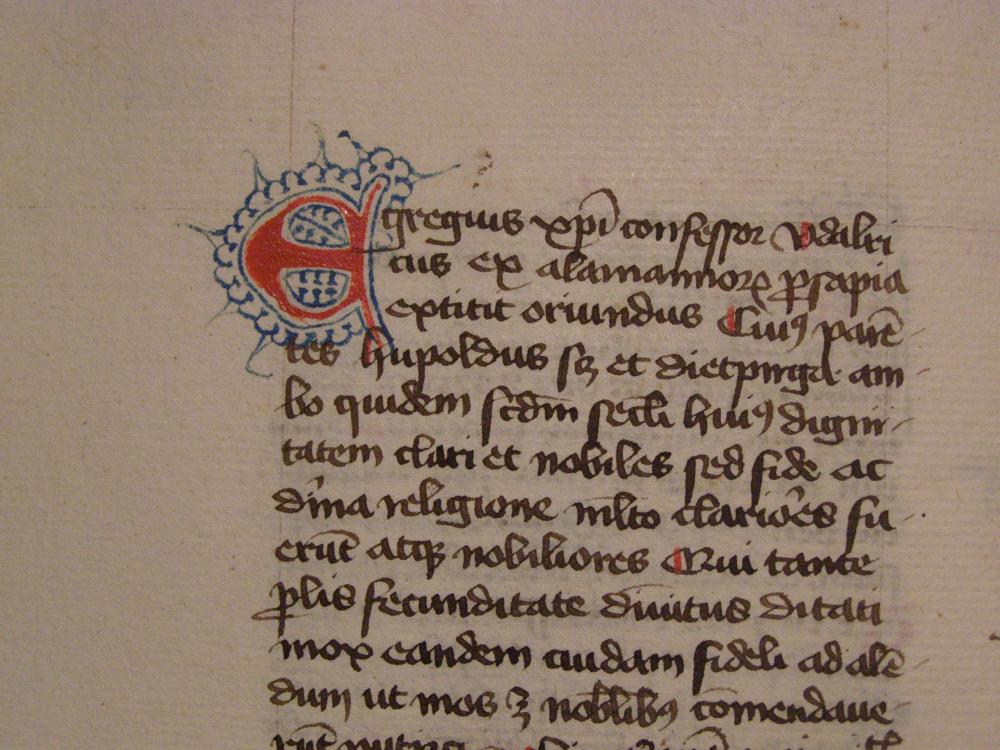 Egregius xp̄i confessor Vdalri
cus ex alamannorꝝ ꝓsapia
extitit oriundus Cuiꝰ parē-
tes hupoldus sꝫ et dietpirga am-
bo quidem scd̄m sec̄li huiꝰ digni-
tatem clari et nobiles sed fide ac
diu̾na religione ml̄to clario̾es fu-
erūt atqꝫ nobiliores Qui tante
ꝓlis fecunditate diuitus ditati
mox eandem cuidam fideli ad alē-
dum ut mos ꝫ nobl̄ibꝰ cōmendaue-
rūt